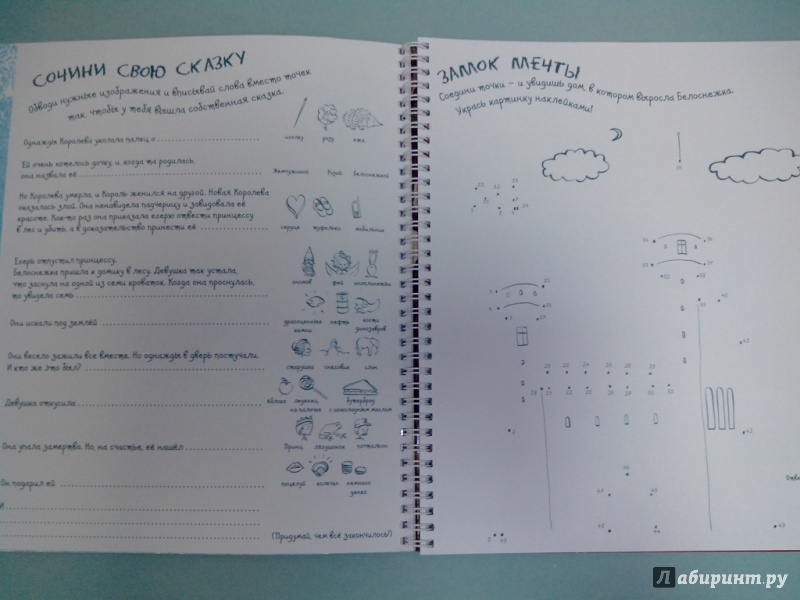 СОЧИНИ СВОЮ СКАЗКУ
Обводи нужные изображения и вписывай слова вместо точек
так, чтобы у тебя вышла собственная сказка.
Однажды Королева уколола палец о
иголку розу ежа
Ей очень хотелось дочку, и, когда та родилась,
она назвала её
Жемчужинкой Розой Белоснежкой
Но Королева умерла, и Король женился на другой. Новая Королева
оказалась злой. Она ненавидела падчерицу и завидовала её
красоте. Как-то раз она приказала егерю отвести принцессу
в лес и убить, а в доказательство принести её
сердце туфельки мобильник
Егерь отпустил принцессу.
Белоснежка пришла к домику в лесу. Девушка так устала,
что заснула на одной из семи кроваток. Когда она проснулась,
то увидела семь
гномов фей
Они искали под землёй
драгоценные камни нефть кости динозавров
Они весело зажили все вместе. Но однажды в дверь постучали.
И кто же это был?
старушка слон
Девушка откусила
яблоко леденец на палочке бутерброд с шоколадным маслом
Она упала замертво. Но, на счастье, её нашёл
Принц лягушонок почтальон
Он подарил ей
поцелуй колечко немного денег
И
(Придумай, чем всё закончилось!)
ЗАМОК МЕЧТЫ
Соедини точки – и увидишь дом, в котором выросла Белоснежка.
Укрась картинку наклейками!
Лабиринт.ру